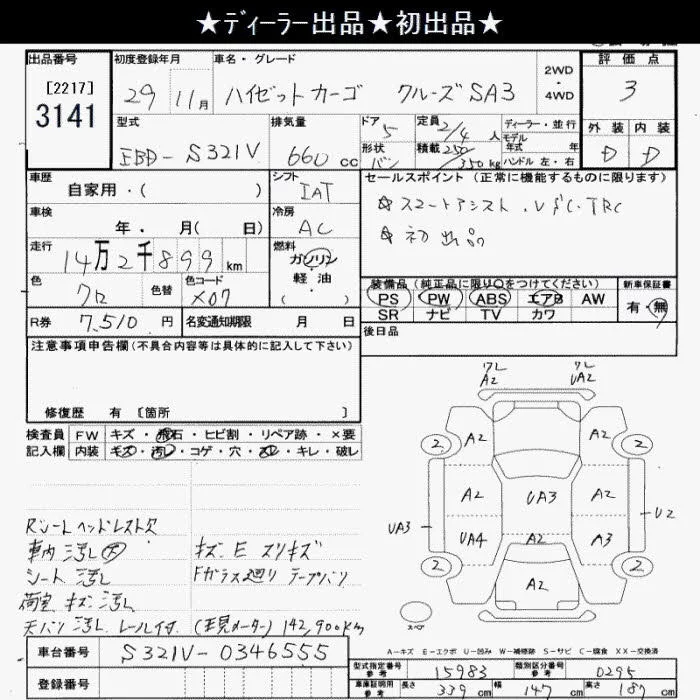 ★ディーラー出品★初出品★
出品番号 [2217] 3141
初度登録年月 29 11月
車名・グレード ハイゼットカーゴ クルーズSA3
2WD・4WD
評価点 3
外装 D 内装 D
型式 EBD-S321V
排気量 660cc
ドア 5 形状 バン
定員 2/4人 積載 250/350kg
ディーラー・並行
モデル年式 年
ハンドル 左・右
車歴 自家用・( )
シフト IAT
セールスポイント (正常に機能するものに限ります)
☆スマートアシスト.VSC.TRC
☆初出品
車検 年・月( 日)
冷房 AC
走行 14万2千899km
燃料 ガソリン・軽油
色 クロ 色替 色コード X07
装備品 (純正品に限り○をつけてください)
PS PW ABS エアB AW
SR ナビ TV カワ
新車保証書 有・無
R券 7,510円 名変通知期限 月 日
後日品
注意事項申告欄(不具合内容等は具体的に記入して下さい)
修復歴 有 〔箇所 〕
検査員記入欄
FW キズ・飛石・ヒビ割・リペア跡・×要
内装 キズ・汚レ・コゲ・穴・スレ・キレ・破レ
ワレ A2 ワレ UA2
2 A2 2
A2 UA3 A2
UA3 UA4 A2 A3 U2
2 A2 2
スペア
Rシートヘッドレスト欠
車内汚レ大 キズ E スリキズ
シート汚レ Fガラス廻りテープバリ
荷室キズ汚レ
天バリ汚レ レール付 (現メーター) 142,900km
A-キズ E-エクボ U-凹み W-補修跡 S-サビ C-腐食 XX-交換済
車台番号 S321V-0346555
登録番号
型式指定番号 参考 15983 類別区分番号 参考 0295
車庫証明用 参考 長さ 339cm 幅 147cm 高さ 187cm